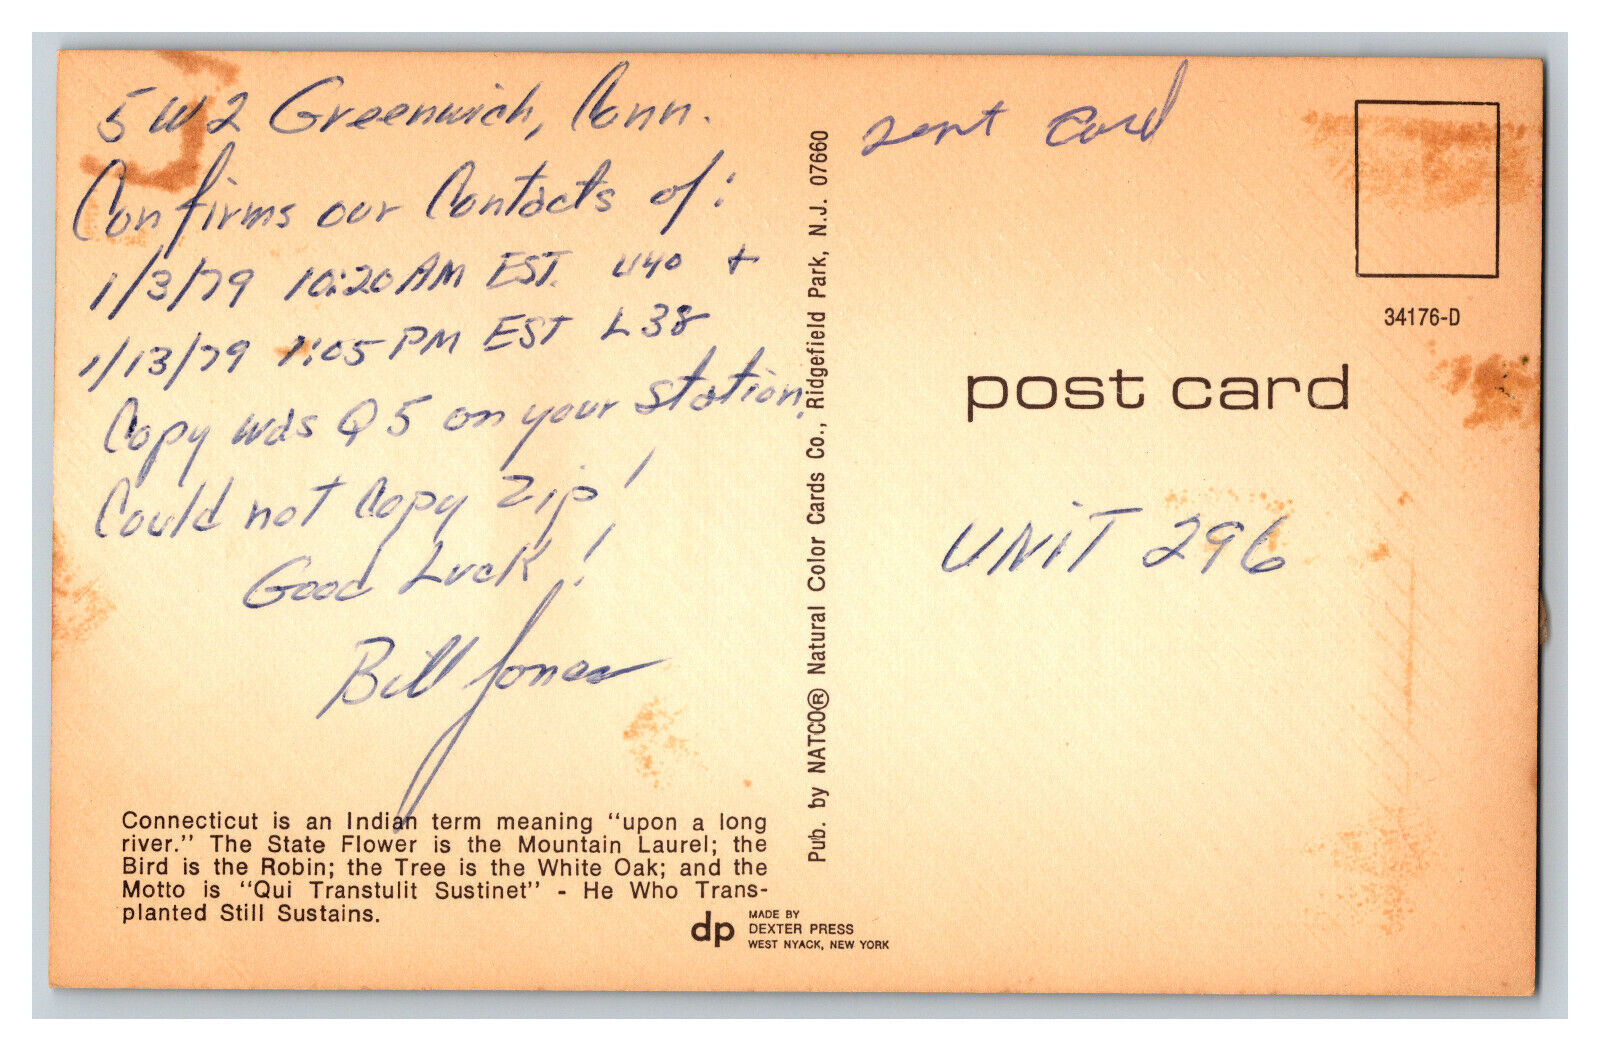 5W2 Greenwich, Conn.
Confirms our Contacts of:
1/3/79 10:20 AM EST. U40 +
1/13/79 1:05 PM EST L38
Copy was Q5 on your station.
Could not Copy Zip!
Good Luck!
Bill Jones
Connecticut is an Indian term meaning "upon a long
river." The State Flower is the Mountain Laurel; the
Bird is the Robin; the Tree is the White Oak; and the
Motto is "Qui Transtulit Sustinet" - He Who Trans-
planted Still Sustains.
dp
MADE BY
DEXTER PRESS
WEST NYACK, NEW YORK
Pub. by NATCO® Natural Color Cards Co., Ridgefield Park, N.J. 07660
sent Card
34176-D
post card
UNiT 296